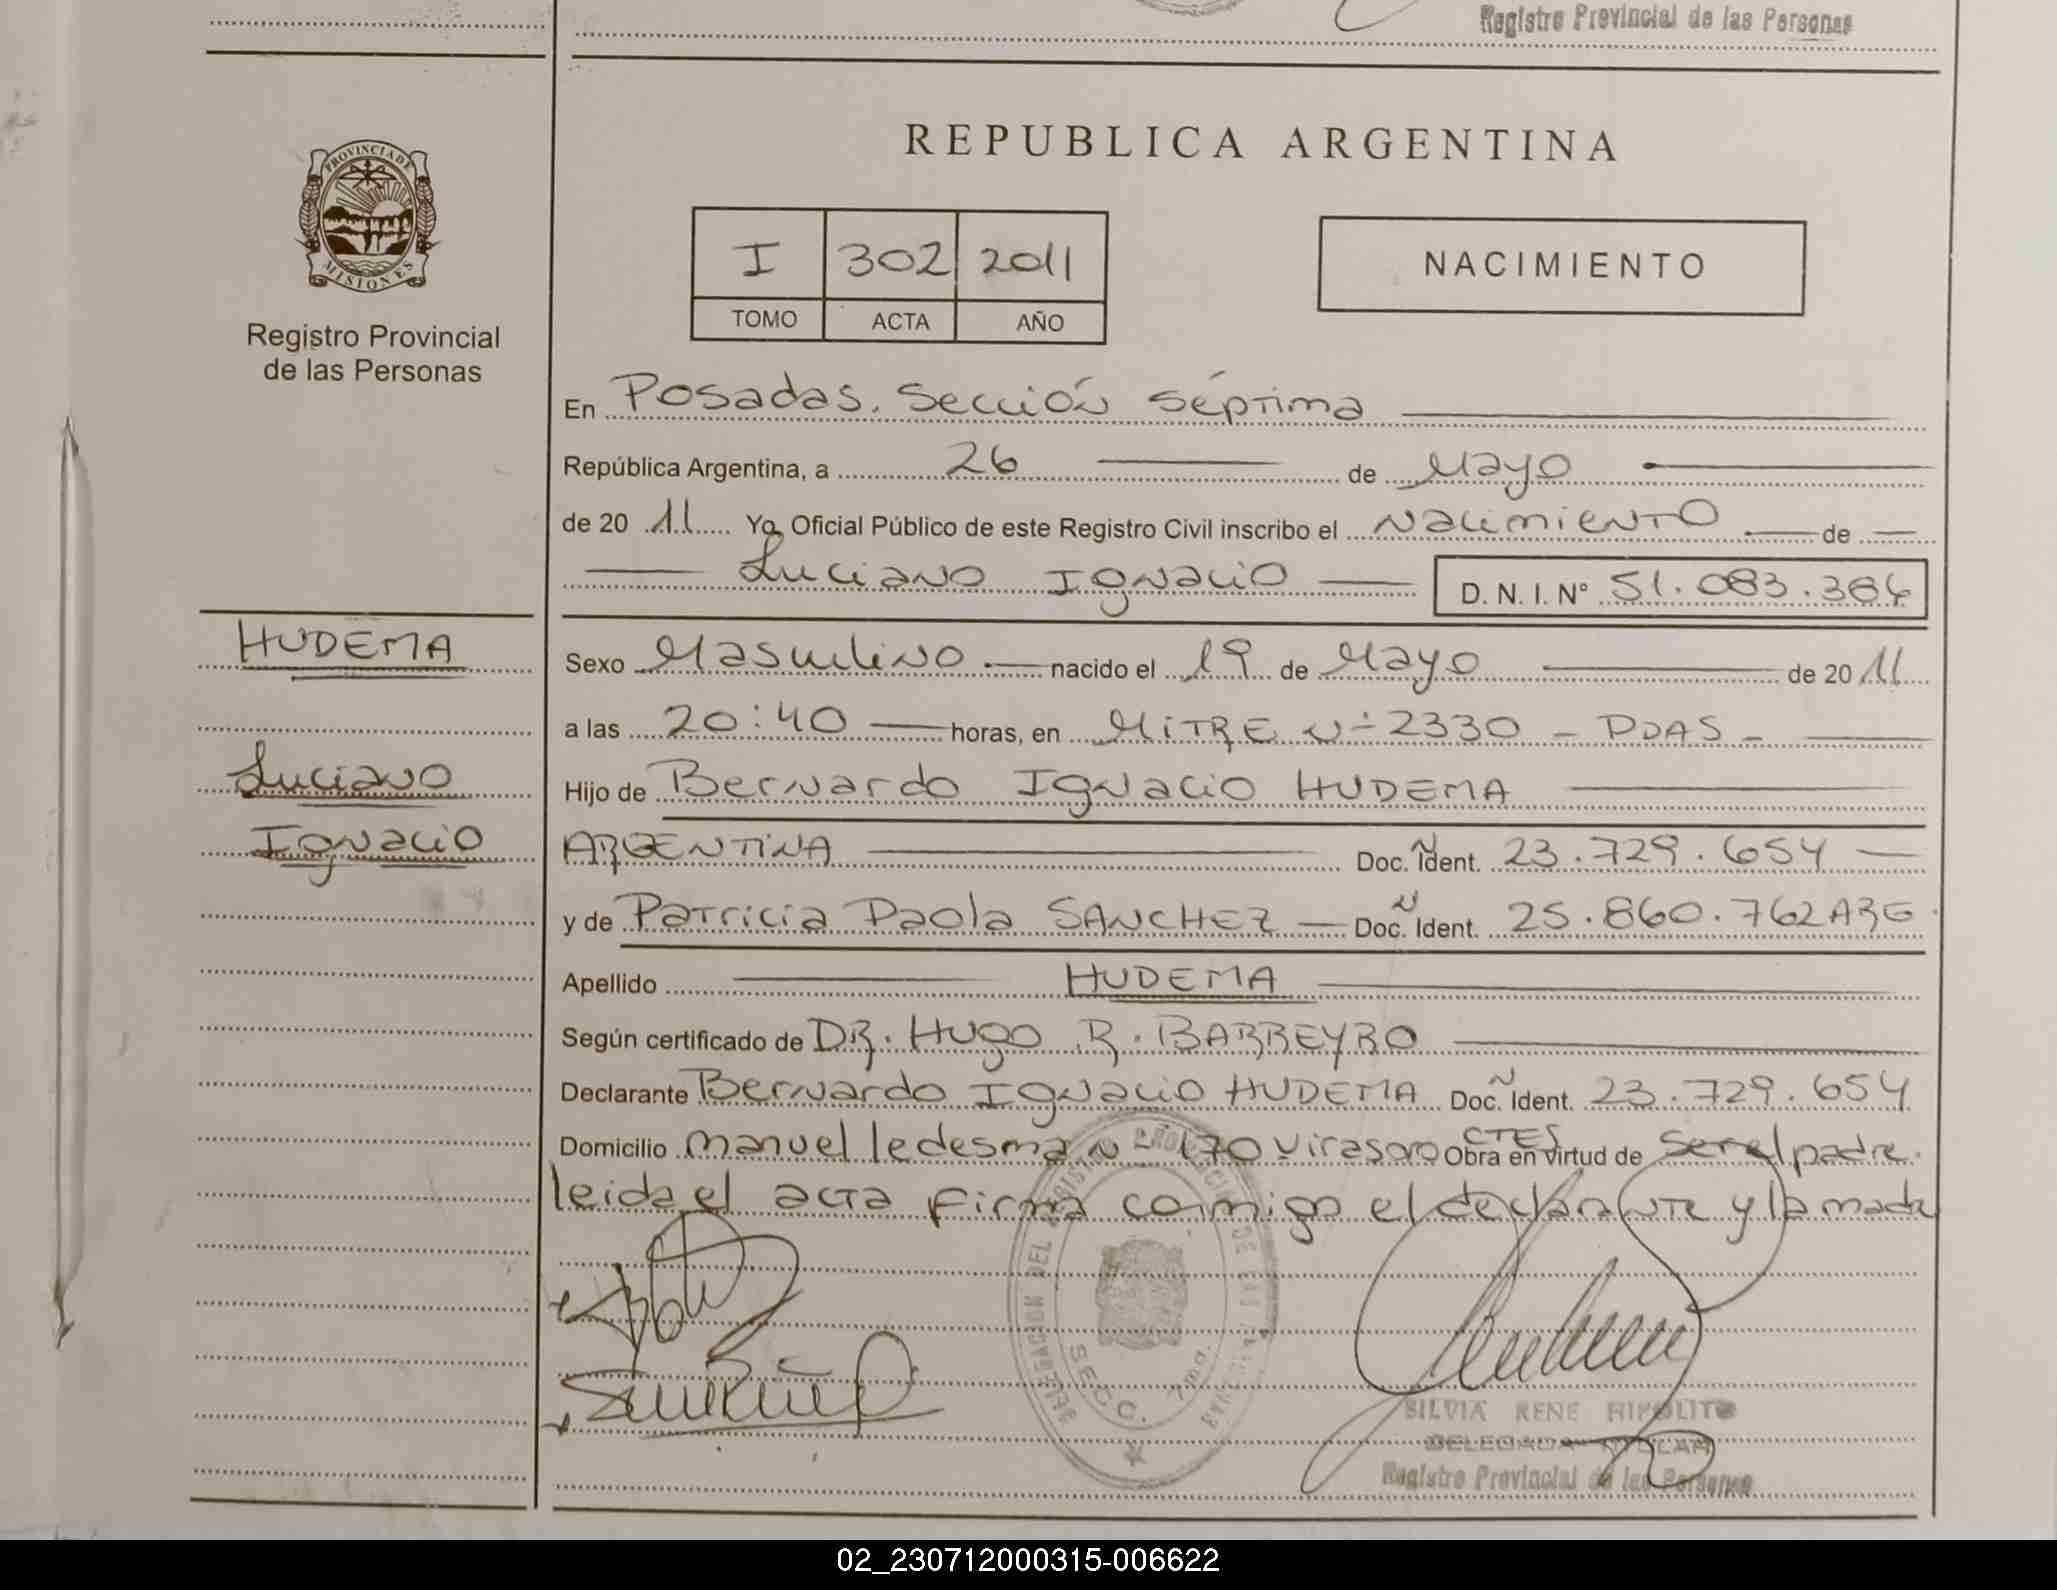 Registro Provincial de las Personas
PROVINCIA DE
MISIONES
Registro Provincial
de las Personas
REPUBLICA ARGENTINA
I 302 2011
TOMO ACTA AÑO
NACIMIENTO
En Posadas. Sección Séptima
República Argentina, a 26 de Mayo
de 20 11 Yo, Oficial Público de este Registro Civil inscribo el Nacimiento de
Luciano Ignacio D. N. I. Nº 51.083.384
HUDEMA
Sexo Masculino nacido el 19 de Mayo de 20 11
a las 20:40 horas, en MITRE Nº 2330 - PDAS -
Luciano
Hijo de Bernardo Ignacio HUDEMA
Ignacio
ARGENTINA Doc. Ident. 23.729.654
y de Patricia Paola SANCHEZ Doc. Ident. 25.860.762 ARG.
Apellido HUDEMA
Según certificado de DR. Hugo R. BARREYRO
Declarante Bernardo Ignacio HUDEMA Doc. Ident. 23.729.654
Domicilio Manuel ledesma Nº 170 Virasoro CTES Obra en virtud de ser el padre.
leida el acta firma conmigo el declarante y la madre
DELEGACION DEL REGISTRO PROVINCIAL DE LAS PERSONAS
SECC. 7ma.
SILVIA RENE HIPOLITO
DELEGADA TITULAR
Registro Provincial de las Personas
02_230712000315-006622